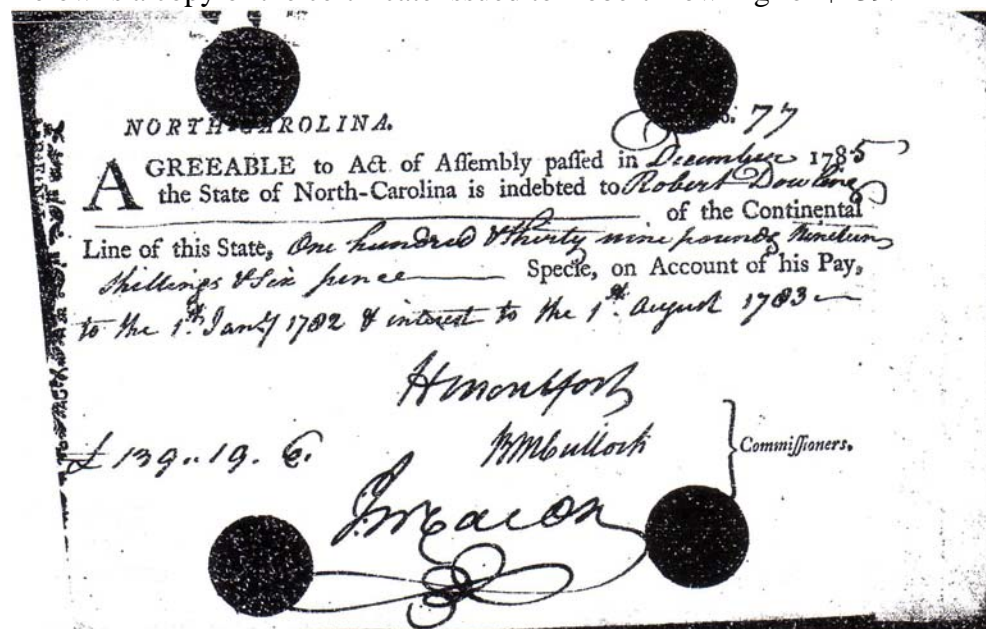 NORTH-CAROLINA.
77
AGREEABLE to Act of Aſſembly paſſed in December 1785
the State of North-Carolina is indebted to Robert Dowling
of the Continental
Line of this State, One hundred & thirty nine pounds Nineteen
Shillings & Six pence Specie, on Account of his Pay,
to the 1st. Jany 1782 & interest to the 1st. August 1783
H Montfort
BMCullock
Commiſſioners.
£ 139.. 19. 6.
J Macon